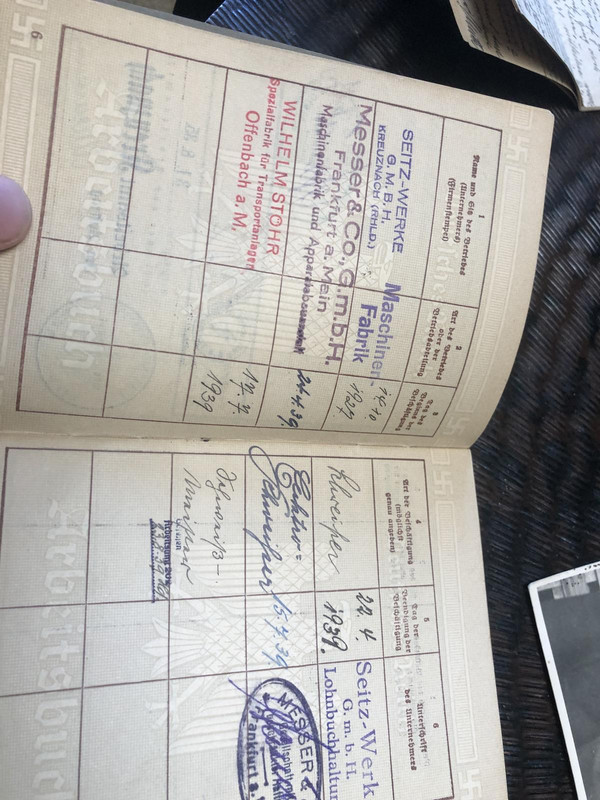 6
1
Name und Sitz des Betriebes
(Unternehmers)
(Firmenstempel)
2
Art des Betriebes
oder der
Betriebsabteilung
3
Tag des
Beginns der
Beschäftigung
SEITZ-WERKE
G.M.B.H.
KREUZNACH (RHLD.)
Maschinen-
Fabrik
1927
Messer & Co., G.m.b.H.
Frankfurt a. Mein
Maschinenfabrik und Apparatebauanstalt
24.4.39.
WILHELM STOHR
Spezialfabrik für Transportanlagen
Offenbach a. M.
17. 7.
1939
4
Art der Beschäftigung
(möglichst
genau angeben)
5
Tag der
Beendigung der
Beschäftigung
6
Unterschrift
des Unternehmers
Schweißer
22. 4.
1939.
Seitz-Werk
G. m. b. H.
Lohnbuchhaltun
Elektro-
Schweißer
15.7.39
MESSER &
Frankfurt a.
Arbeitsbuch